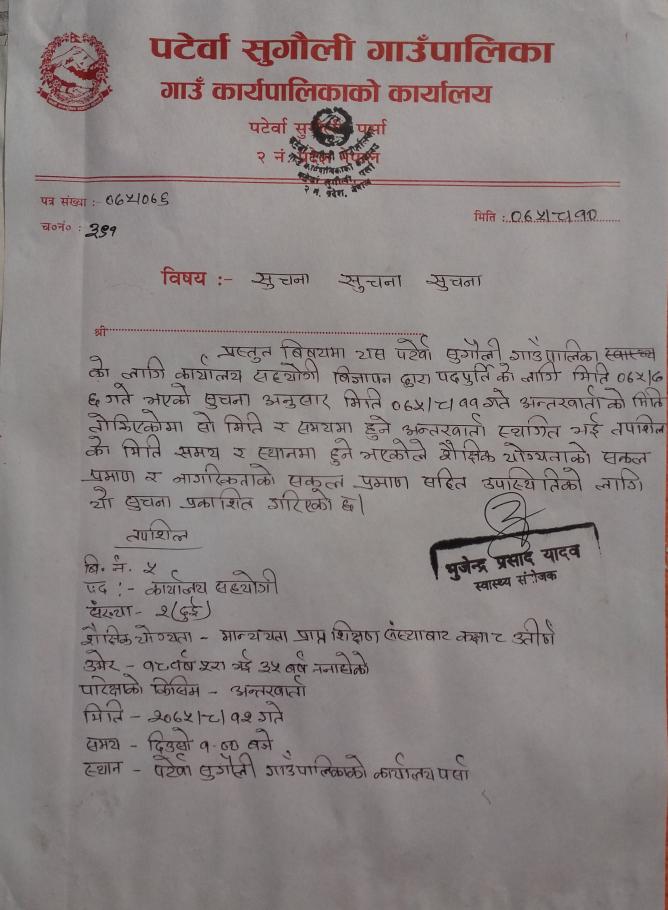 पटेर्वा सुगौली गाउँपालिका
गाउँ कार्यपालिकाको कार्यालय
पटेर्वा सुगौली पर्सा
२ नं. प्रदेश नेपाल
पत्र संख्या :- ०७५/०७६
मिति : ०७५/८/१०
च०नं० : ३९१
विषय :- सुचना सुचना सुचना
श्री
प्रस्तुत बिषयमा यस पटेर्वा सुगौली गाउँपालिका स्वास्थ्य
को लागि कार्यालय सहयोगी बिज्ञापन द्वारा पदपुर्ति को लागि मिति ०७५/७
६ गते भएको सुचना अनुसार मिति ०७५/८/११ गते अन्तरवार्ता को मिति
तोकिएकोमा सो मिति र समयमा हुने अन्तरवार्ता स्थगित भई तपशिल
को मिति समय र स्थानमा हुने भएकोले शैक्षिक योग्यताको सक्कल
प्रमाण र नागरिकताको सक्कल प्रमाण सहित उपस्थितिको लागि
यो सुचना प्रकाशित गरिएको छ।
भुजेन्द्र प्रसाद यादव
स्वास्थ्य संयोजक
तपशिल
बि. नं. ५
पद :- कार्यालय सहयोगी
संख्या - २ (दुई)
शैक्षिक योग्यता - मान्यता प्राप्त शिक्षण संस्थाबाट कक्षा ८ उतीर्ण
उमेर - १८ वर्ष पुरा भई ३५ बर्ष ननाघेको
परिक्षाको किसिम - अन्तरवार्ता
मिति - २०७५/८/१२ गते
समय - दिउसो १.०० बजे
स्थान - पटेर्वा सुगौली गाउँपालिकाको कार्यालय पर्सा